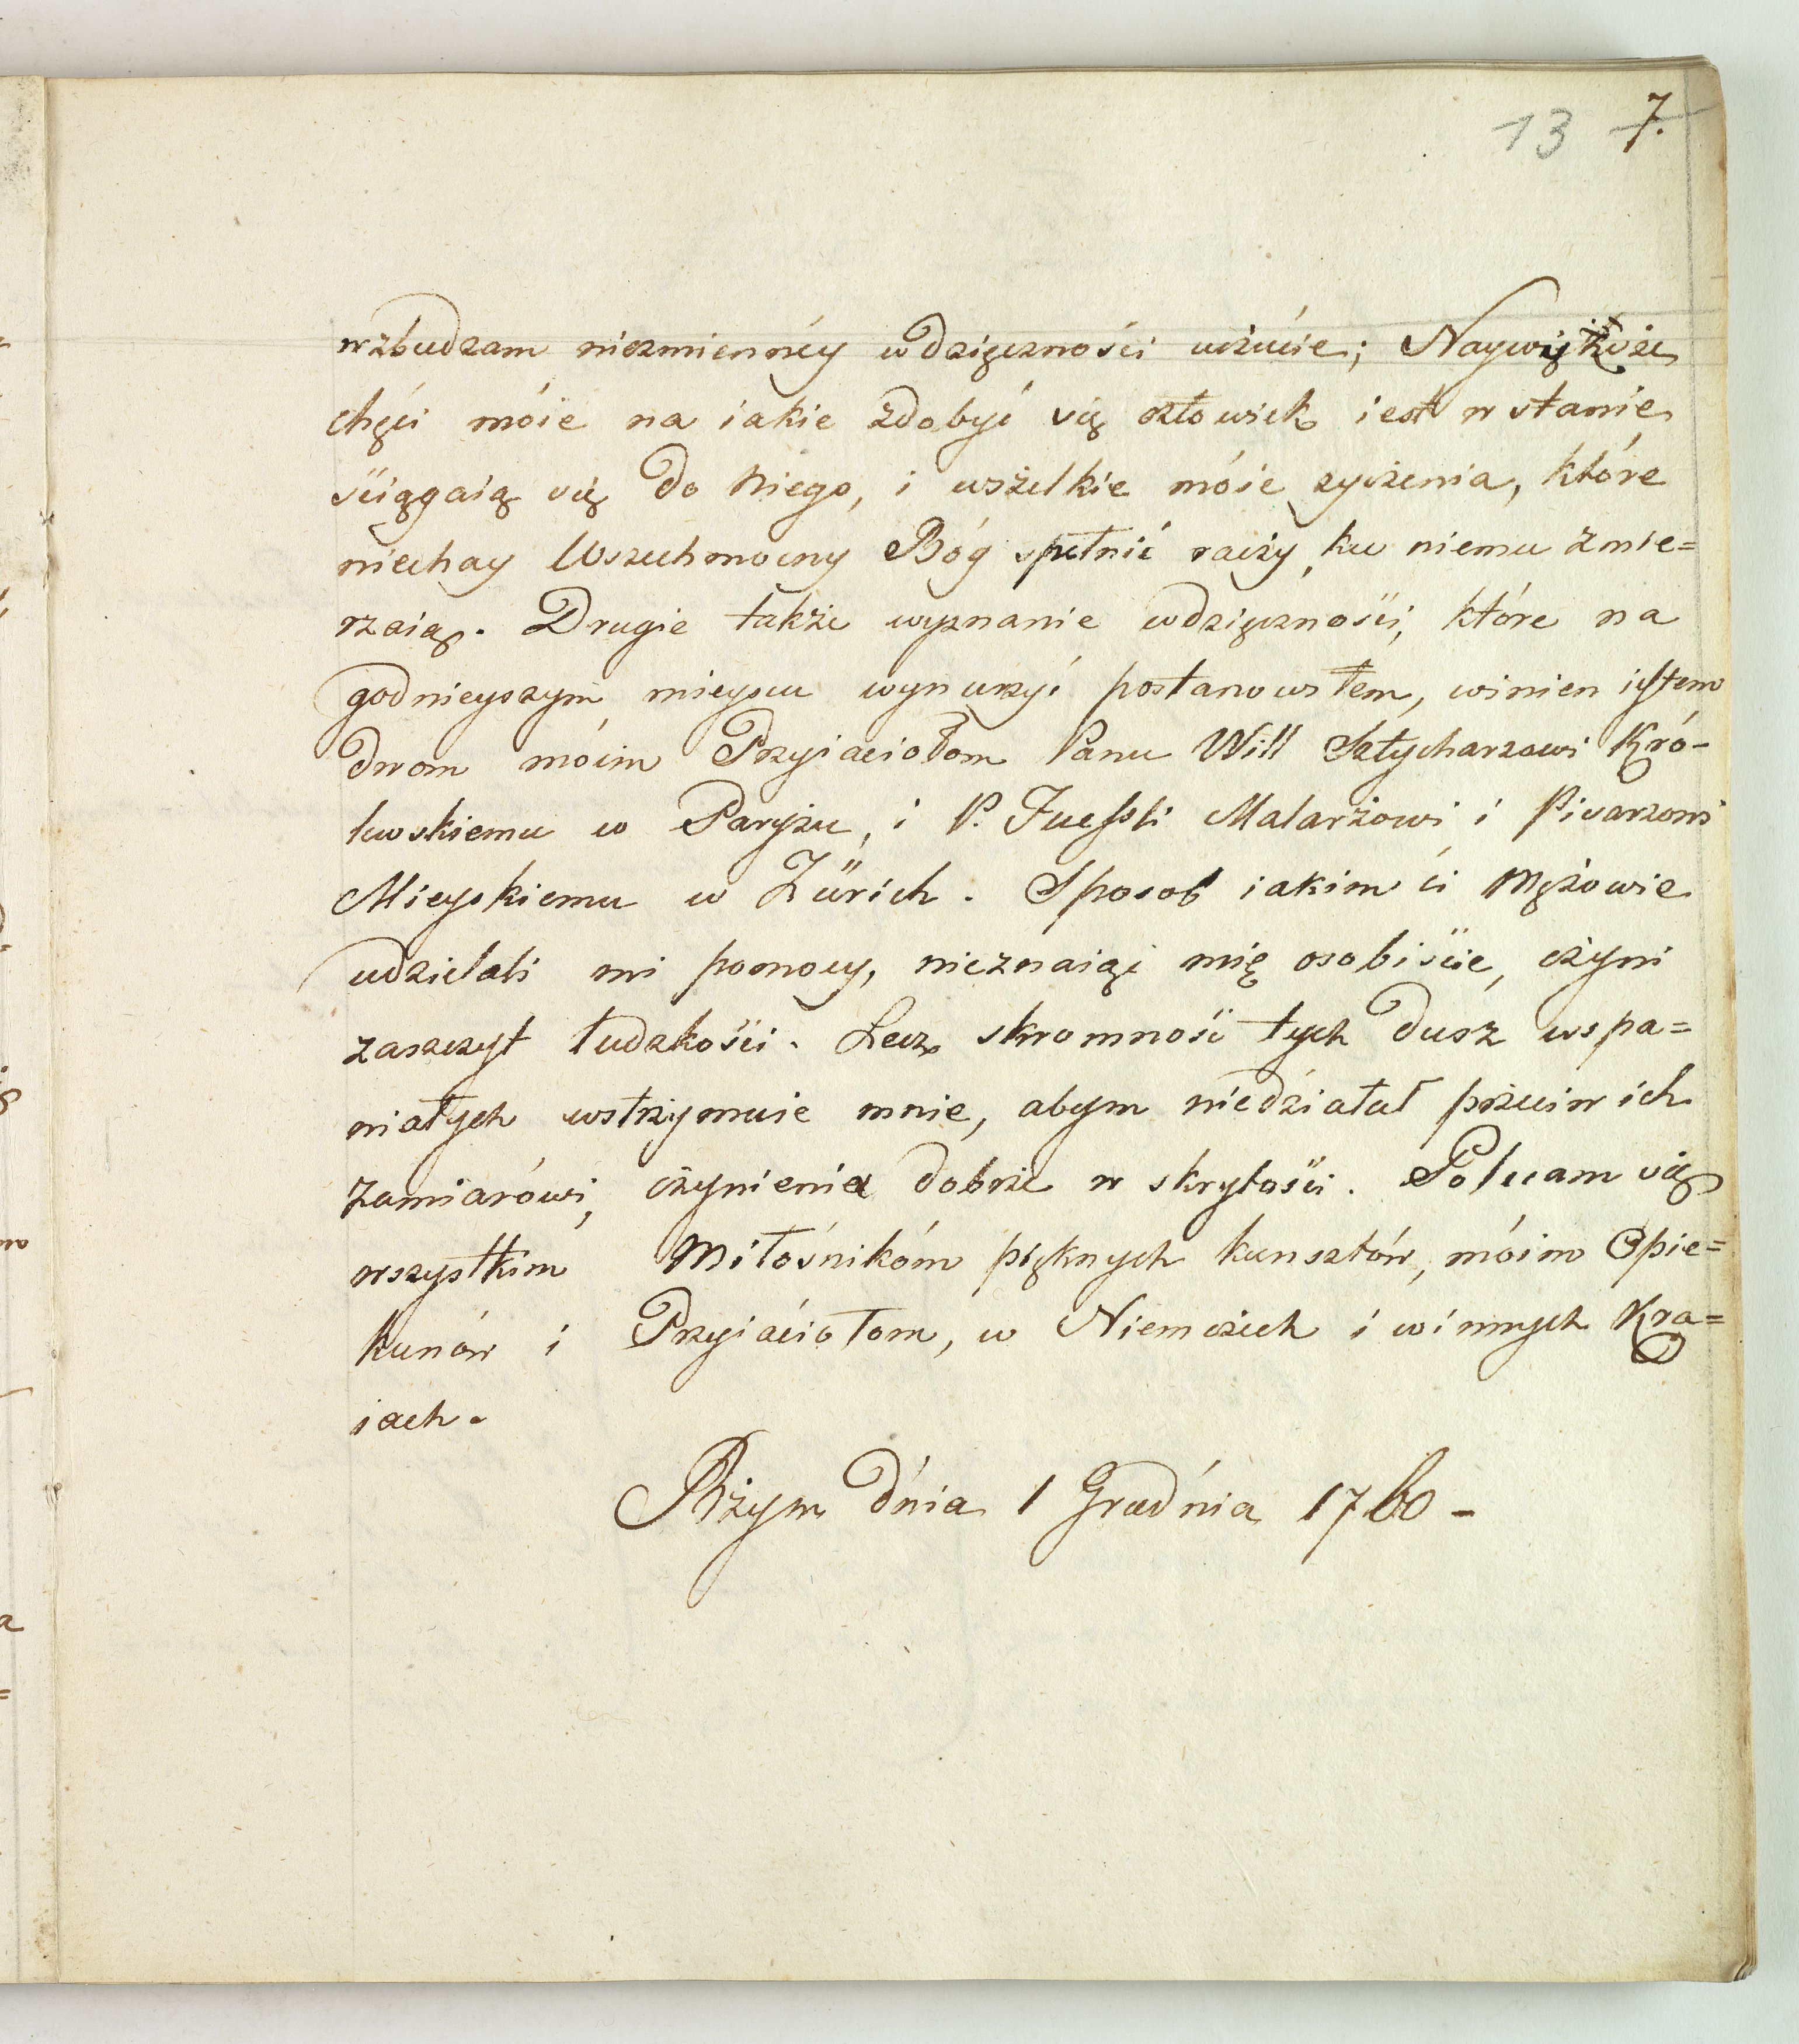 13 7.
wzbudzam niezmiennéy wdzięczności uczucie; Naywiększe
chęci móie na iakie zdobyć się człowiek iest w stanie
ściągaią się do Niego, i wszelkie móie życzenia, które
niechay Wszechmocny Bóg spełnić raczy, ku niemu zmie=
rzaią. Drugie także wyznanie wdzięczności, które na
godnieyszym mieyscu wynurzyć postanowiłem, winien iestem
dwom móim Przyiaciołom Panu Will Sztycharzowi Kró-
lewskiemu w Paryżu, i P. Fuessli Malarzowi i Pisarzowi
Mieyskiemu w Zürich. Sposob iakim ci Mężowie
udzielali mi pomocy, nieznaiąc mię osobiście, czyni
zaszczyt ludzkości. Lecz skromność tych dusz wspa=
niałych wstrzymuie mnie, abym niedziałał przeciw ich
zamiarówi, czynienia dobrze w skrytości. Polecam się
wszystkim Miłośnikóm pięknych kunsztów, móim Opie=
kunów i Przyiaciołom, w Niemczech i winnych Kra=
iach.
Rzym dnia 1 Grudnia 1760 -